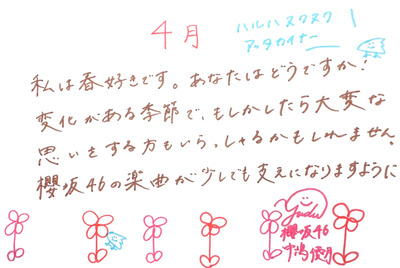 4月
ハルハスクスク
アッタカイナー
私は春好きです。あなたはどうですか？
変化がある季節で、もしかしたら大変な
思いをする方もいらっしゃるかもしれません。
櫻坂46の楽曲が少しでも支えになりますように
櫻坂46
中嶋優月